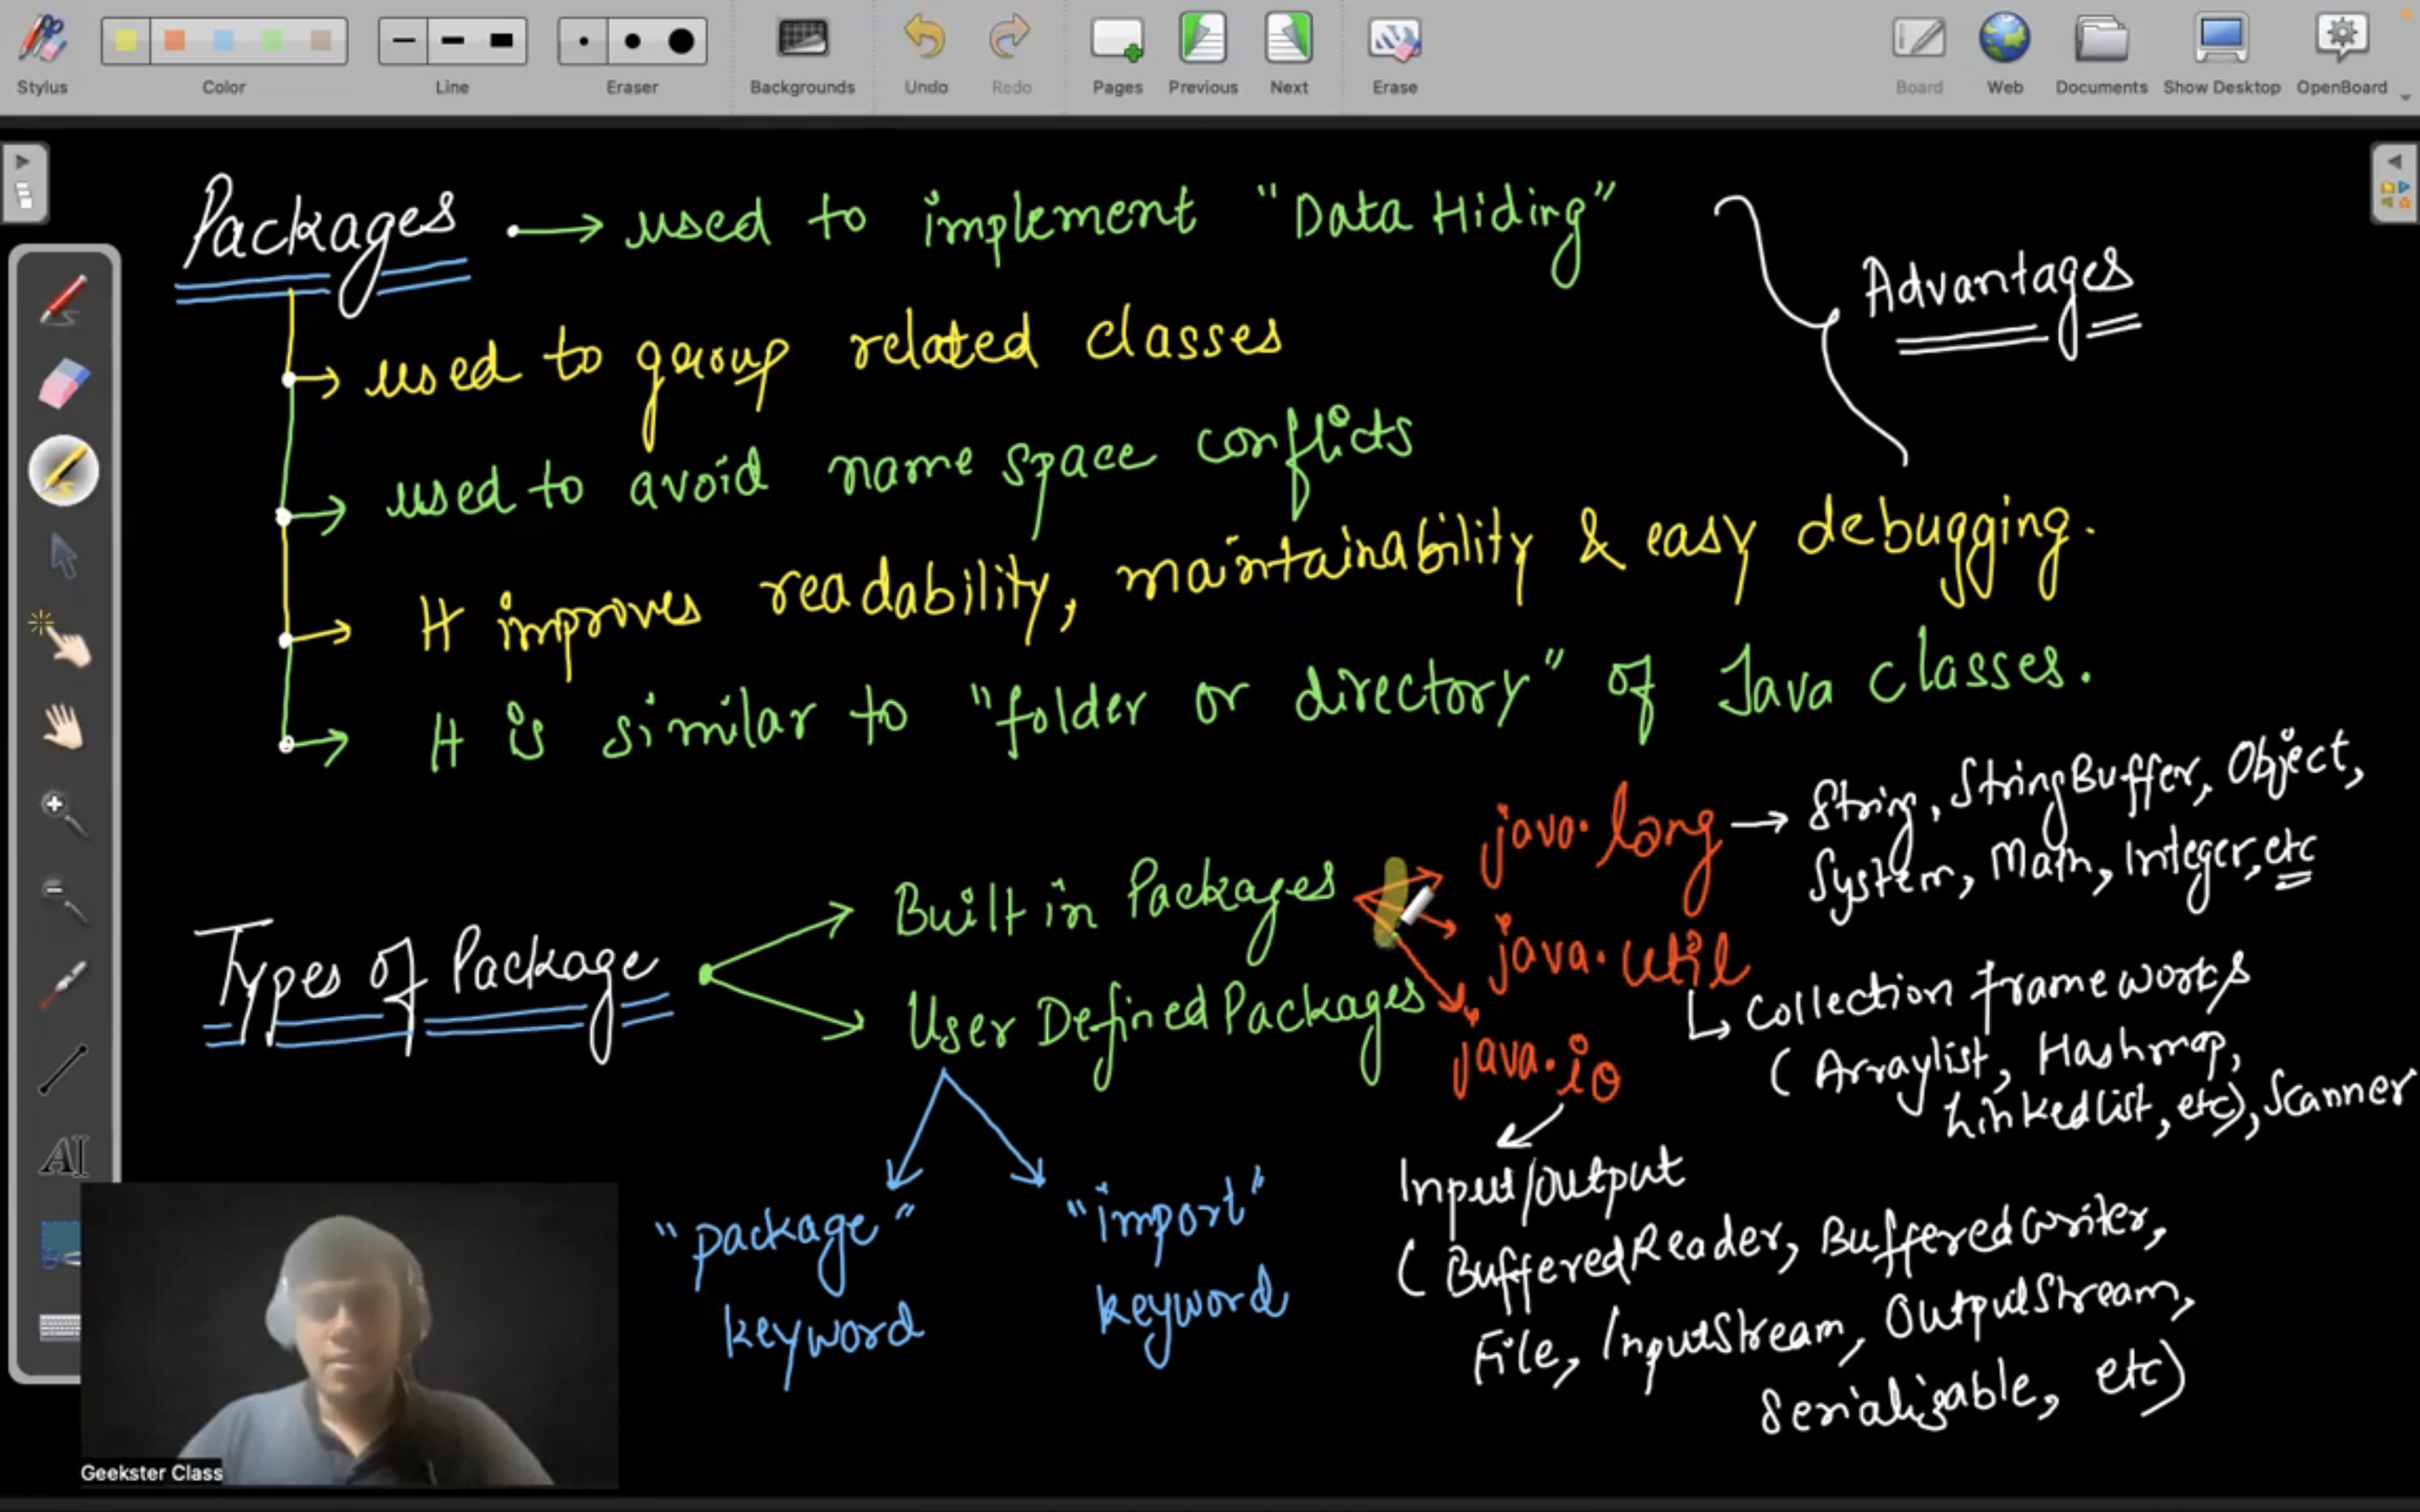 Stylus
Color
Line
Eraser
Backgrounds
Undo
Redo
Pages
Previous
Next
Erase
Board
Web
Documents
Show Desktop
OpenBoard
Packages → used to implement "Data Hiding"
Advantages
→ used to group related classes
→ used to avoid name space conflicts
→ It improves readability, maintainability & easy debugging.
→ It is similar to "folder or directory" of Java classes.
Types of Package
Built in Packages
User Defined Packages
"package"
keyword
"import"
keyword
java.lang → String, StringBuffer, Object,
System, Math, Integer, etc
java.util
Collection frameworks
(Arraylist, Hashmap,
Linkedlist, etc), Scanner
java.io
Input/output
(BufferedReader, BufferedWriter,
File, InputStream, OutputStream,
Serializable, etc)
AI
Geekster Class